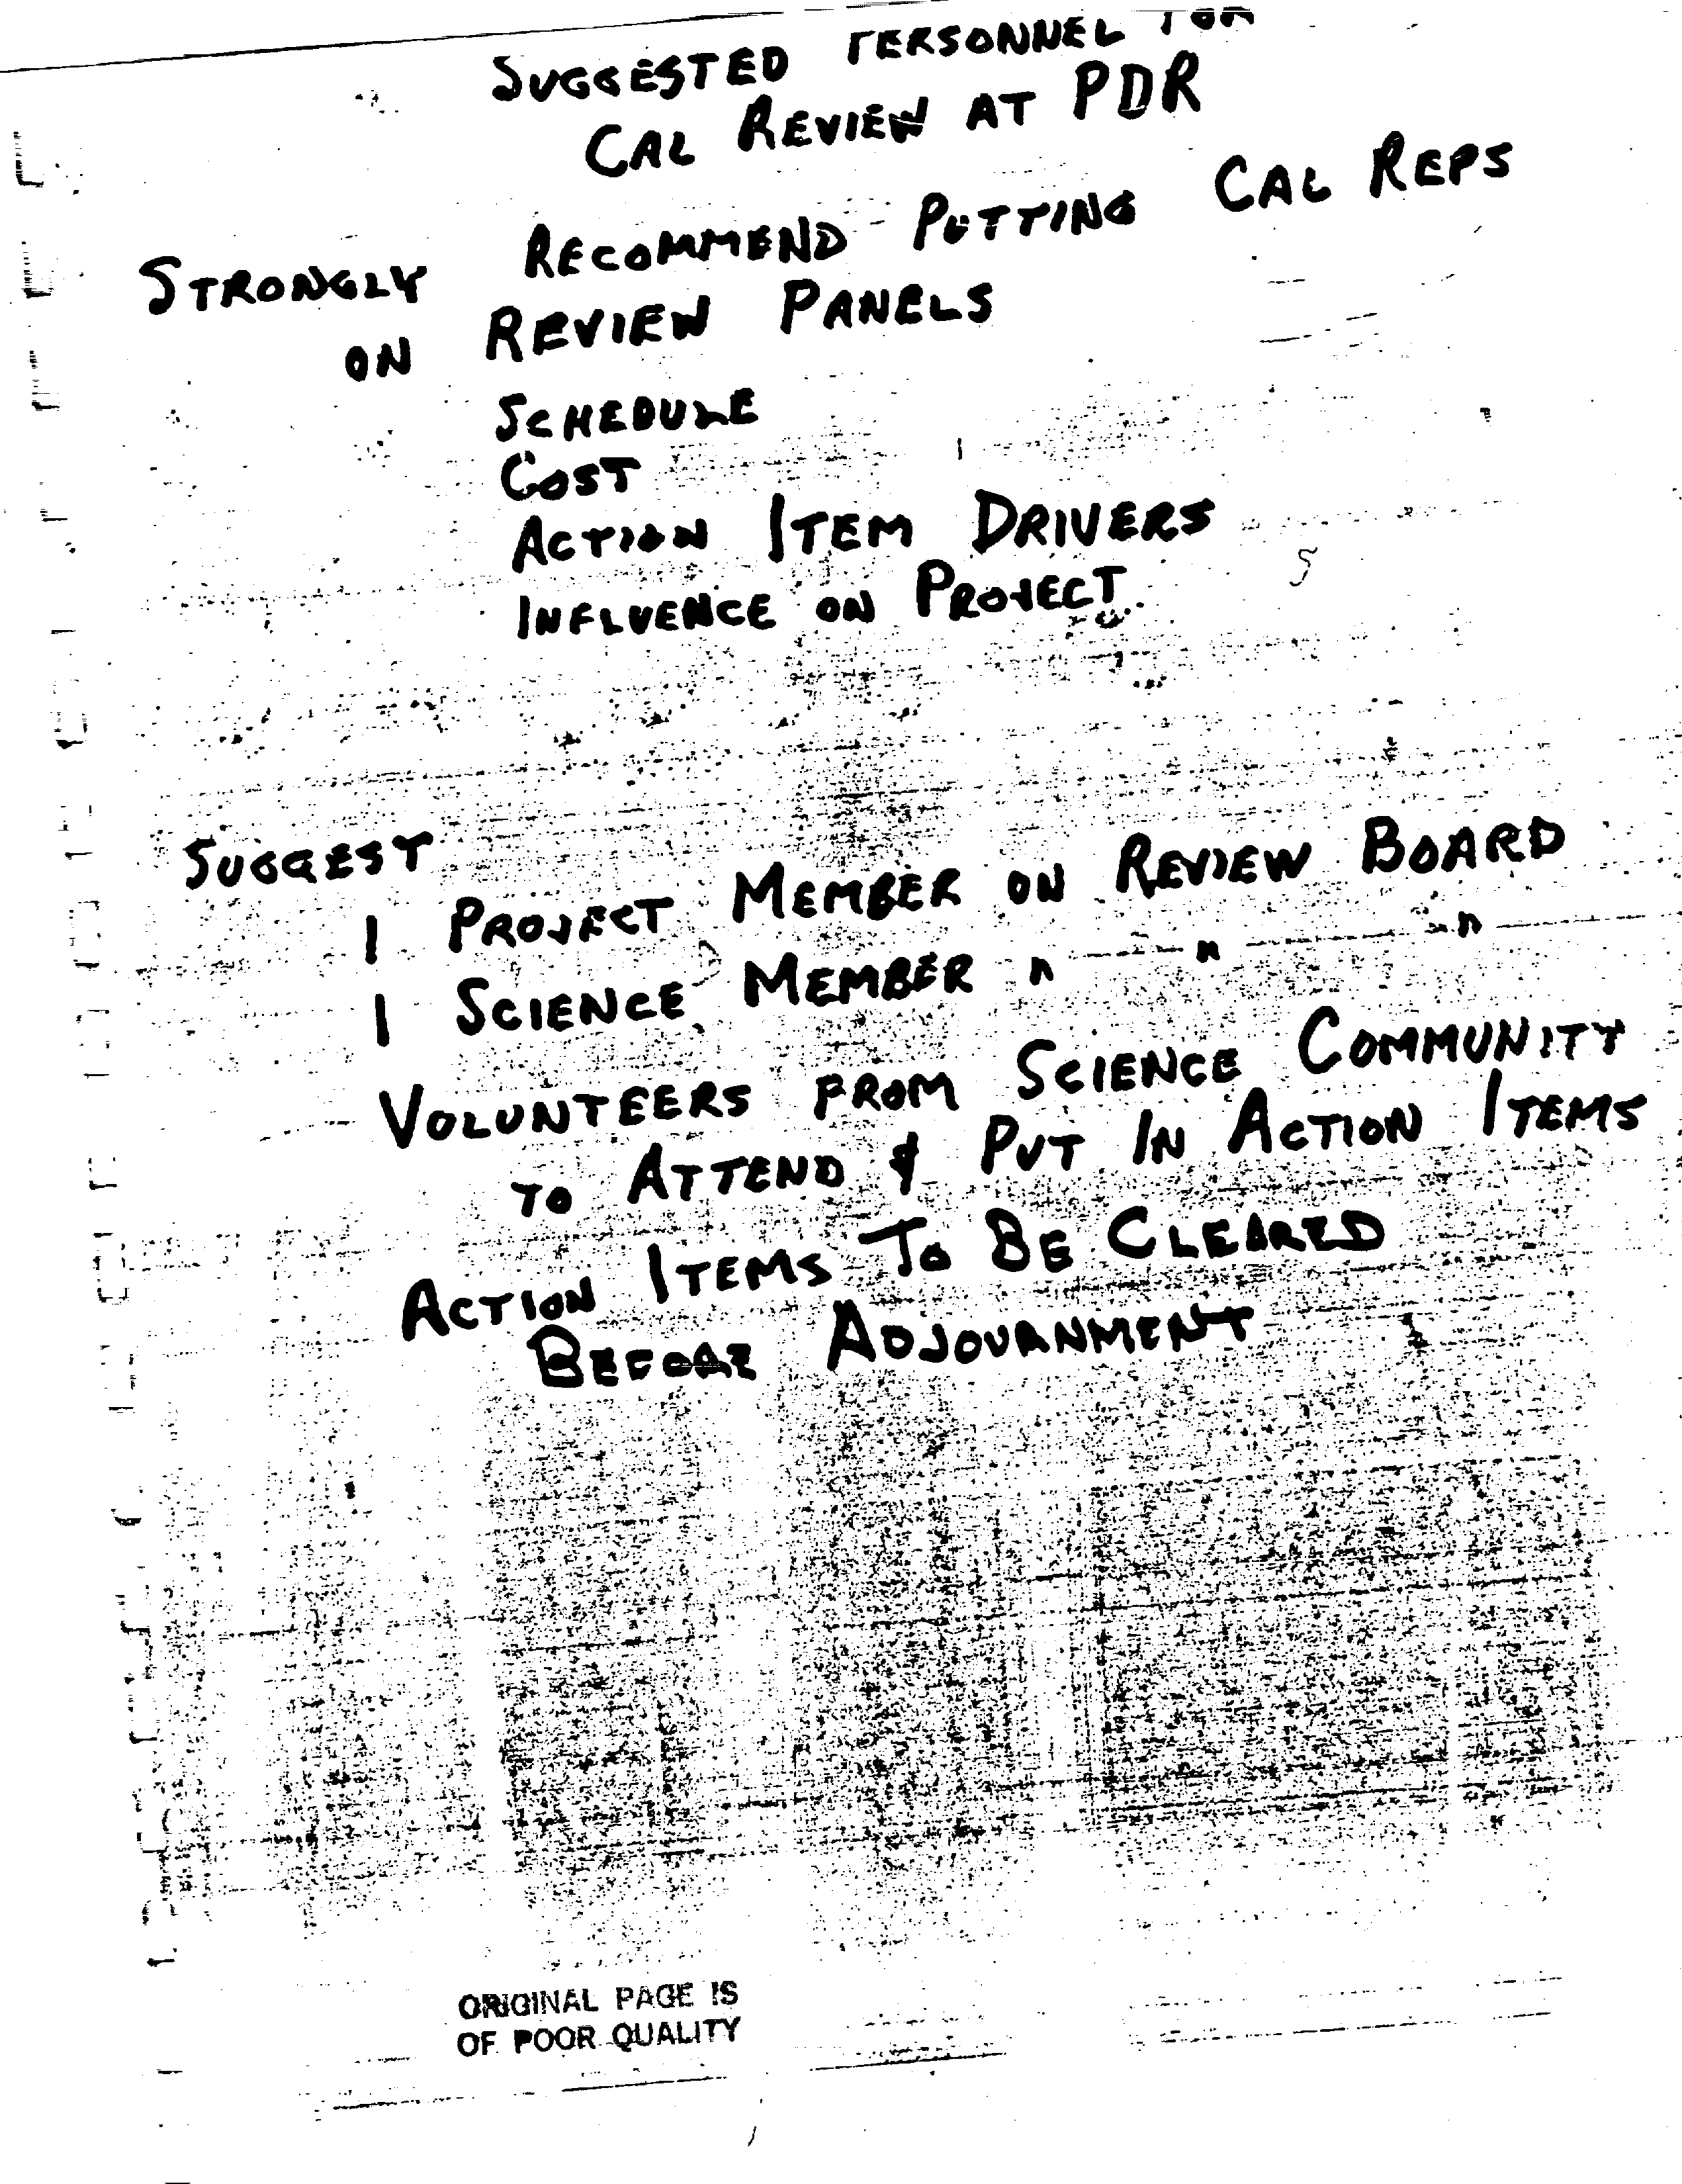 SUGGESTED PERSONNEL FOR
CAL REVIEW AT PDR
STRONGLY RECOMMEND PUTTING CAL REPS
ON REVIEW PANELS
SCHEDULE
COST
ACTION ITEM DRIVERS
INFLUENCE ON PROJECT
SUGGEST
1 PROJECT MEMBER ON REVIEW BOARD
1 SCIENCE MEMBER " " "
VOLUNTEERS FROM SCIENCE COMMUNITY
TO ATTEND & PUT IN ACTION ITEMS
ACTION ITEMS TO BE CLEARED
BEFORE ADJOURNMENT
ORIGINAL PAGE IS
OF POOR QUALITY